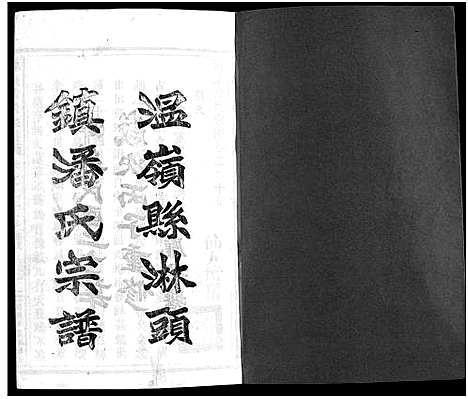 温嶺縣淋頭
鎮潘氏宗譜